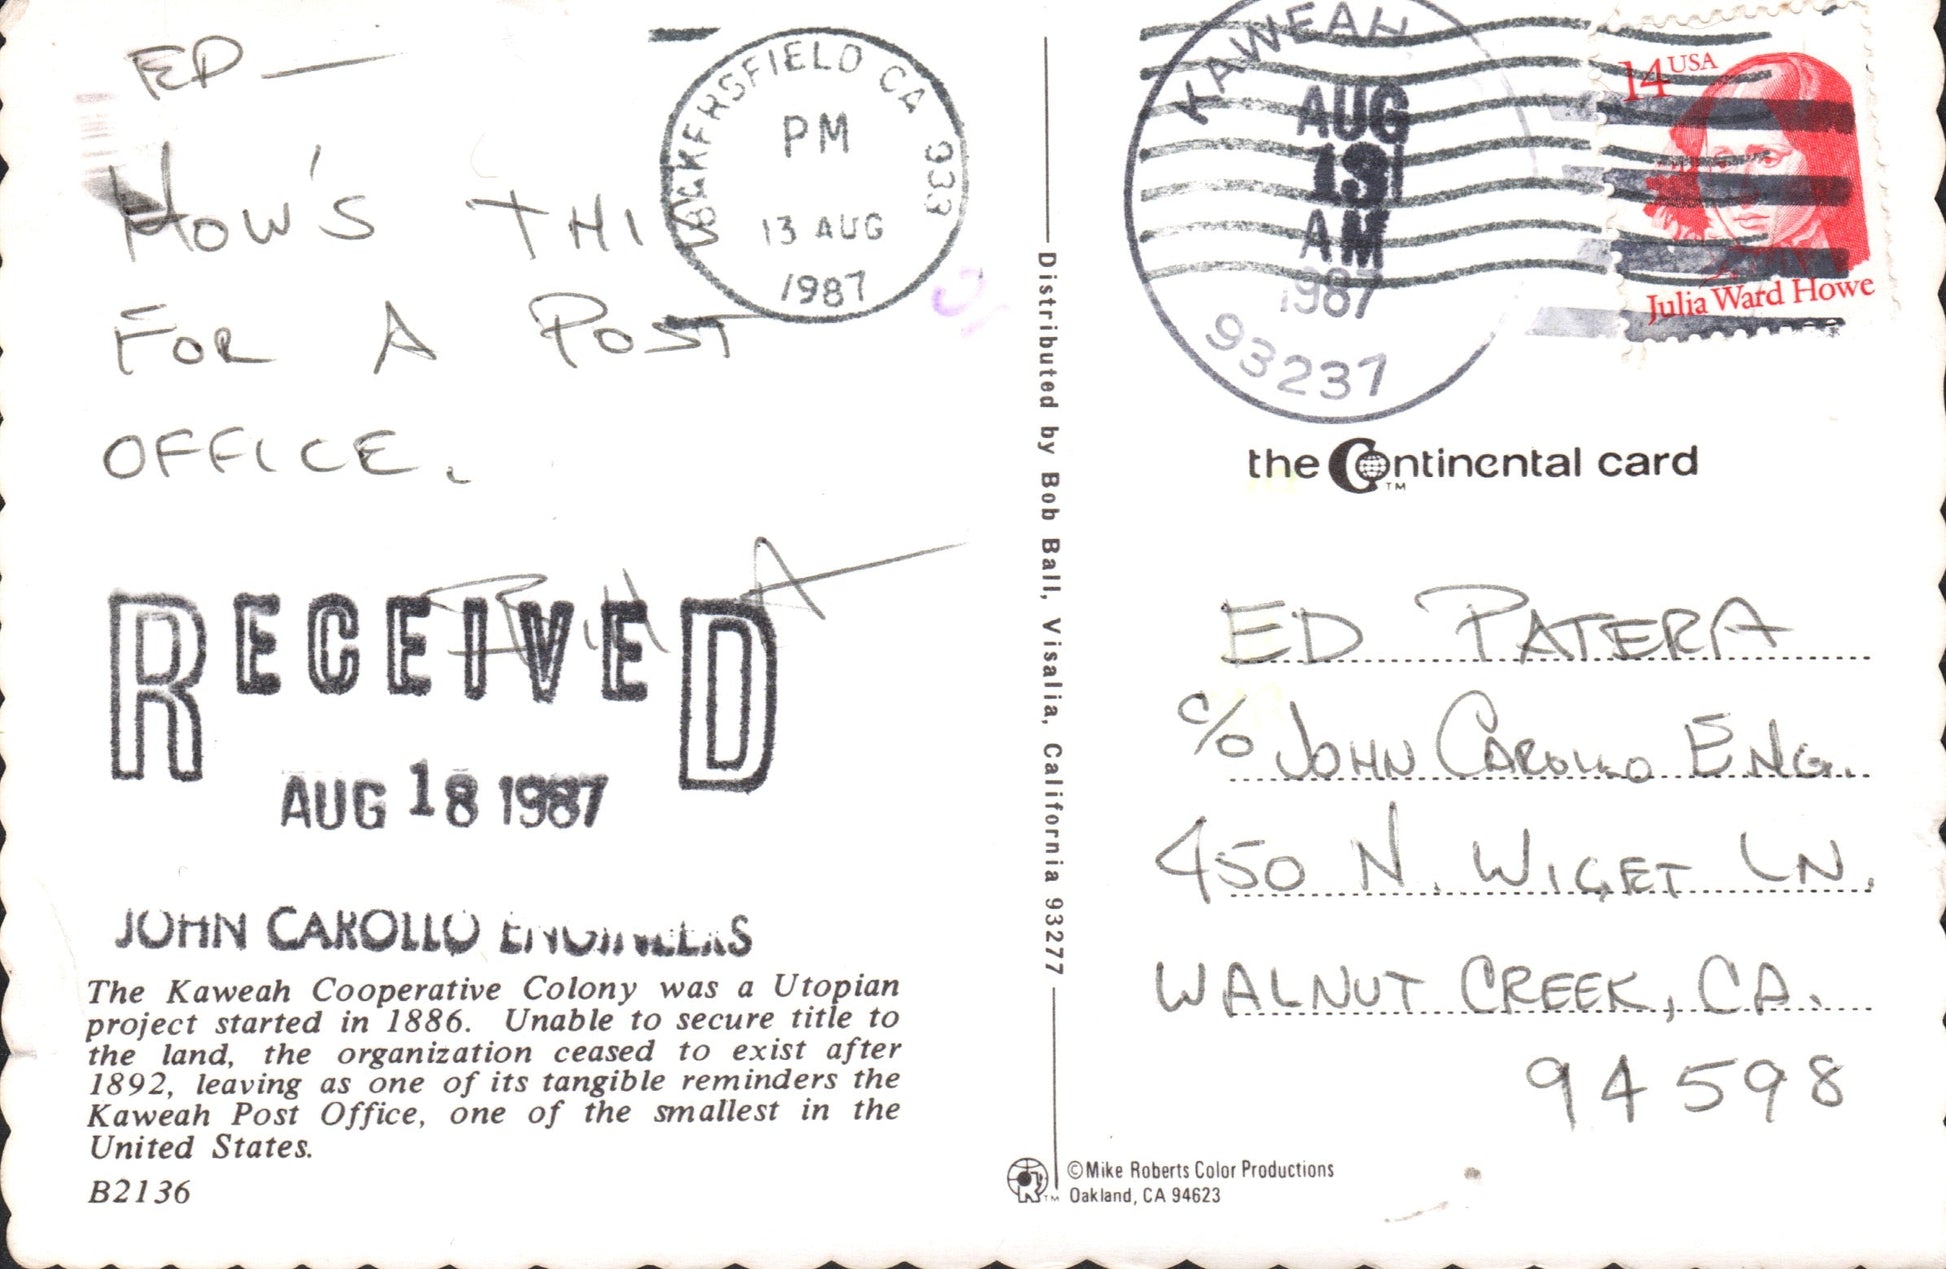 ED —
HOW'S THI
FOR A POST
OFFICE.
RECEIVED
AUG 18 1987
JOHN CAROLLO ENGINEERS
The Kaweah Cooperative Colony was a Utopian
project started in 1886. Unable to secure title to
the land, the organization ceased to exist after
1892, leaving as one of its tangible reminders the
Kaweah Post Office, one of the smallest in the
United States.
B2136
BAKERSFIELD CA 933
PM
13 AUG
1987
Distributed by Bob Ball, Visalia, California 93277
KAWEAH
AUG
AM
1987
93237
14 USA
Julia Ward Howe
the Continental card
TM
ED PATERA
c/o JOHN CAROLLO ENG.
450 N. WIGET LN.
WALNUT CREEK, CA.
94598
TM
©Mike Roberts Color Productions
Oakland, CA 94623